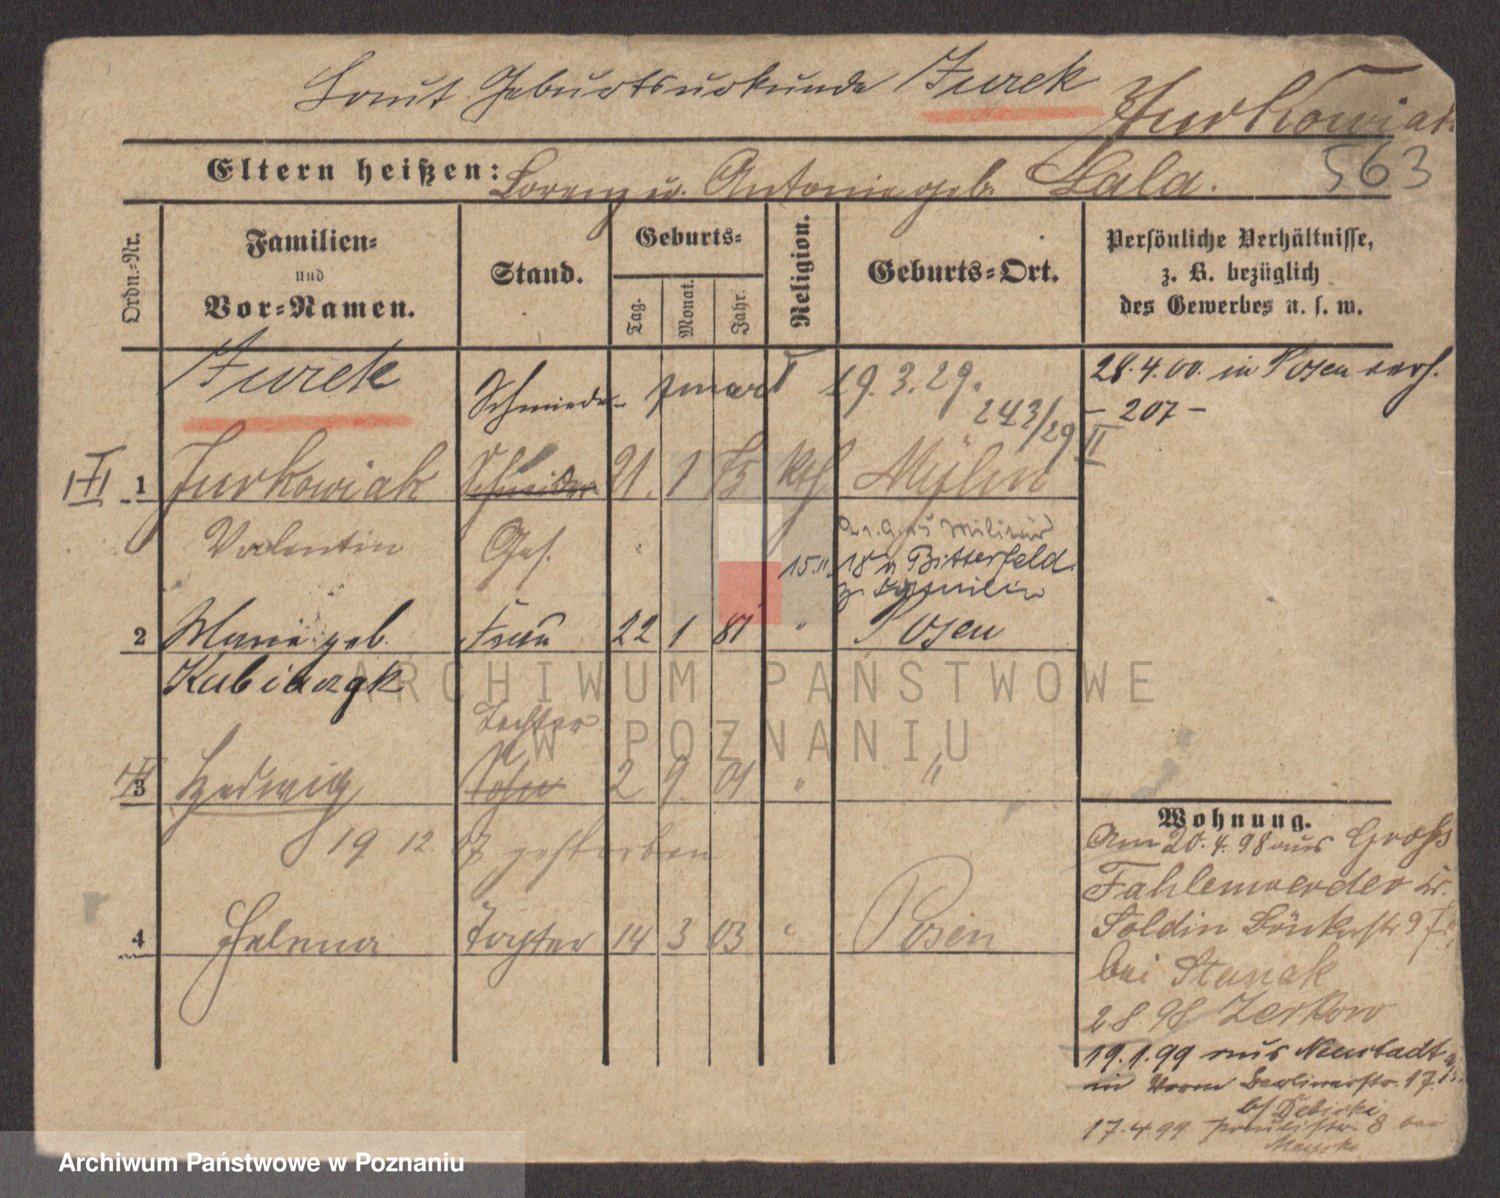 Laut Geburtsurkunde Jurek Jurkowiak
Eltern heißen: Lorenz u. Antonie geb. Lala.
563
Ordn.-Nr.
Familien-
und
Vor-Namen.
Stand.
Geburts-
Tag.
Monat.
Jahr.
Religion.
Geburts-Ort.
Persönliche Verhältnisse,
z. B. bezüglich
des Gewerbes u. s. w.
Jurek
19.3.29.
243/29
II
28.4.00. in Posen verh.
- 207 -
1 Jurkowiak Schneider 21. 1 75 kth
Valentin Ges.
Militär
15.11. 18 n Bitterfeld
2 Marie geb. Frau 22 1 81 " Posen
Kubiczak
Tochter
3 Hedwig Sohn 2 9. 01 " "
19 12 gestorben
4 Helena Tochter 14 3 03 " Posen
Wohnung.
Am 20.4.98 aus Groß
Fahlenwerder Kr.
Soldin 9
bei Stanak
2 8 98 Zerkow
19.1.99 aus Neustadt
in Berlinerstr. 17
b/ Debicki
17.4.99 8 bei
ARCHIWUM PAŃSTWOWE
W POZNANIU
Archiwum Państwowe w Poznaniu